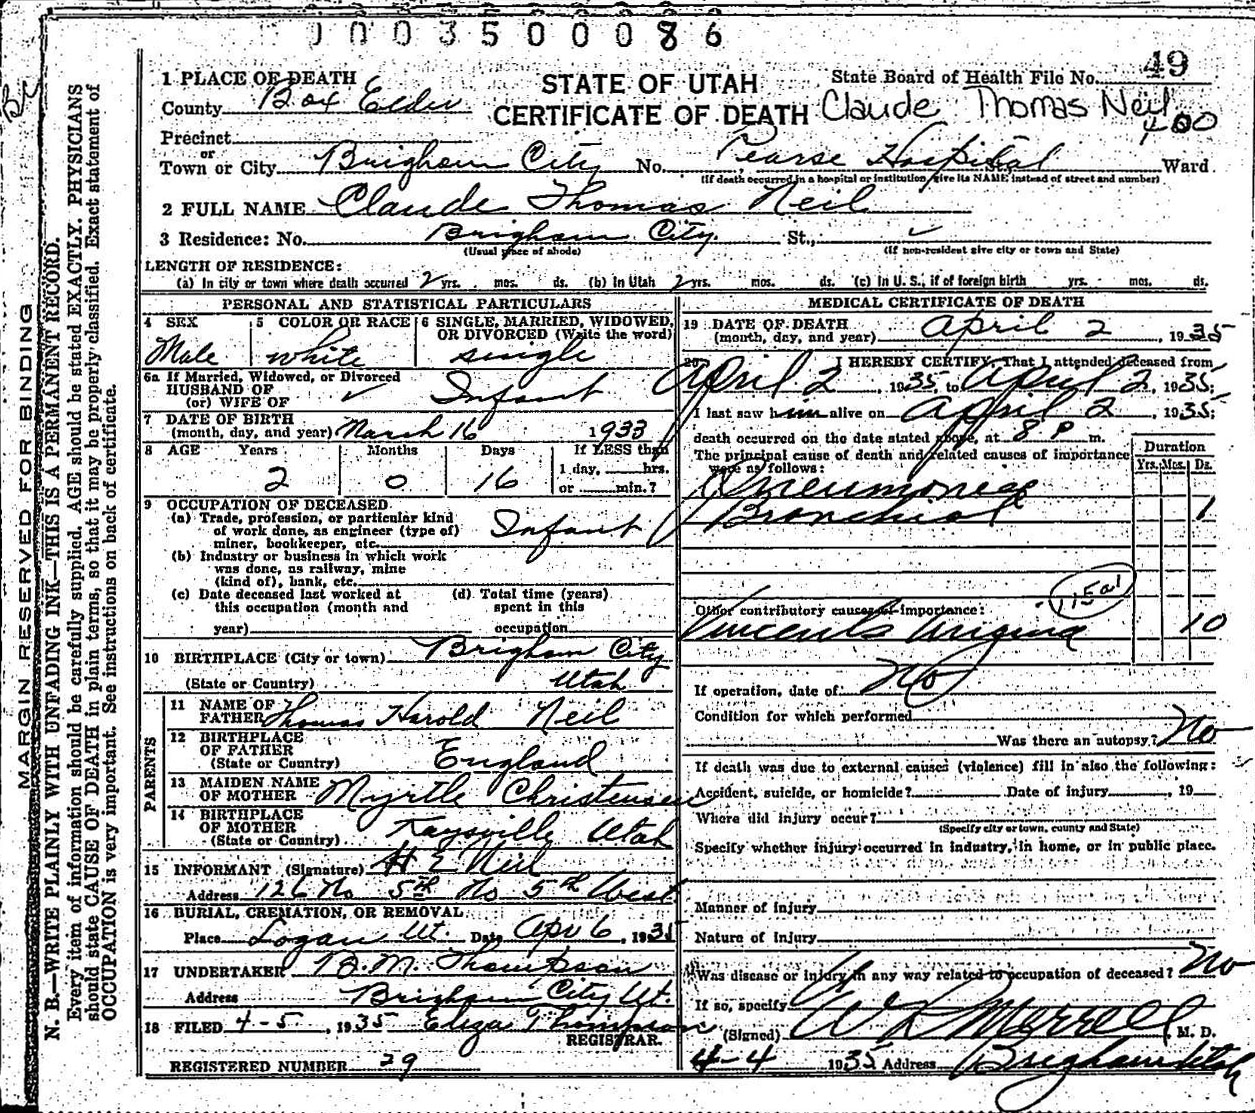 0003500086
1 PLACE OF DEATH
STATE OF UTAH
State Board of Health File No. 49
County Box Elder
CERTIFICATE OF DEATH
Claude Thomas Neil
400
Precinct
or
Town or City Brigham City No. Pearse Hospital St., Ward
(If death occurred in a hospital or institution, give its NAME instead of street and number)
2 FULL NAME Claude Thomas Neil
3 Residence: No. Brigham City St.,
(Usual place of abode) (If non-resident give city or town and State)
LENGTH OF RESIDENCE:
(a) In city or town where death occurred 2 yrs. mos. ds. (b) In Utah 2 yrs. mos. ds. (c) In U. S., if of foreign birth yrs. mos. ds.
PERSONAL AND STATISTICAL PARTICULARS
4 SEX
Male
5 COLOR OR RACE
White
6 SINGLE, MARRIED, WIDOWED,
OR DIVORCED (Write the word)
single
6a If Married, Widowed, or Divorced
HUSBAND OF
(or) WIFE OF
Infant
7 DATE OF BIRTH
(month, day, and year) March 16 1933
8 AGE Years Months Days If LESS than
1 day, hrs.
or min.?
2 0 16
9 OCCUPATION OF DECEASED
(a) Trade, profession, or particular kind
of work done, as engineer (type of)
miner, bookkeeper, etc. Infant
(b) Industry or business in which work
was done, as railway, mine
(kind of), bank, etc.
(c) Date deceased last worked at
this occupation (month and
year)
(d) Total time (years)
spent in this
occupation
10 BIRTHPLACE (City or town) Brigham City
(State or Country) Utah
PARENTS
11 NAME OF
FATHER Thomas Harold Neil
12 BIRTHPLACE
OF FATHER
(State or Country) England
13 MAIDEN NAME
OF MOTHER Myrtle Christensen
14 BIRTHPLACE
OF MOTHER
(State or Country) Kaysville Utah
15 INFORMANT (Signature) H E Neil
Address 126 No 5th No 5th West
16 BURIAL, CREMATION, OR REMOVAL
Place Logan Ut. Date Apr 6, 1935
17 UNDERTAKER B. M. Thompson
Address Brigham City Ut.
18 FILED 4-5, 1935 Eliza Thompson
REGISTRAR.
REGISTERED NUMBER 29
MEDICAL CERTIFICATE OF DEATH
19 DATE OF DEATH
(month, day, and year) April 2, 1935
20 I HEREBY CERTIFY, That I attended deceased from
April 2, 1935 to April 2, 1935;
I last saw him alive on April 2, 1935;
death occurred on the date stated above, at 8 P m.
The principal cause of death and related causes of importance
were as follows:
Duration
Yrs. Mos. Ds.
Pneumonia
Bronchial 1
115a1
Other contributory causes of importance:
Vincents Angina 10
If operation, date of No
Condition for which performed
Was there an autopsy? No
If death was due to external causes (violence) fill in also the following:
Accident, suicide, or homicide? Date of injury, 19
Where did injury occur?
(Specify city or town, county and State)
Specify whether injury occurred in industry, in home, or in public place.
Manner of injury
Nature of injury
Was disease or injury in any way related to occupation of deceased? No
If so, specify
(Signed) W L Merrell, M. D.
4-4 1935 Address Brigham Utah
MARGIN RESERVED FOR BINDING
N. B.—WRITE PLAINLY WITH UNFADING INK—THIS IS A PERMANENT RECORD.
Every item of information should be carefully supplied. AGE should be stated EXACTLY. PHYSICIANS
should state CAUSE OF DEATH in plain terms, so that it may be properly classified. Exact statement of
OCCUPATION is very important. See instructions on back of certificate.